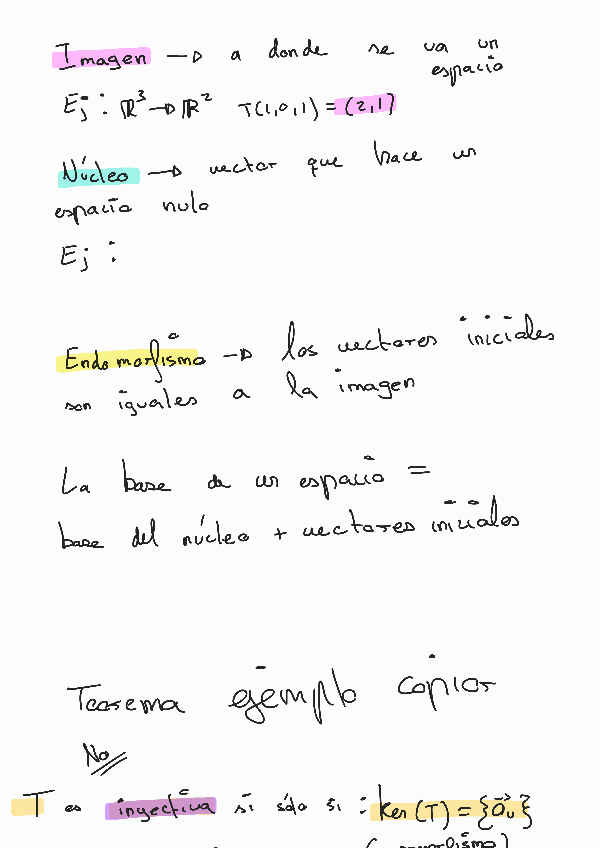 Imagen → a donde se va un
espacio
Ej: ℝ³ → ℝ² T(1,0,1) = (2,1)
Núcleo → vector que hace un
espacio nulo
Ej :
Endomorfismo → los vectores iniciales
son iguales a la imagen
La base de un espacio =
base del núcleo + vectores iniciales
Teorema ejemplo copiar
No
T es inyectiva si sólo si : Ker(T) = {0⃗ᵤ}